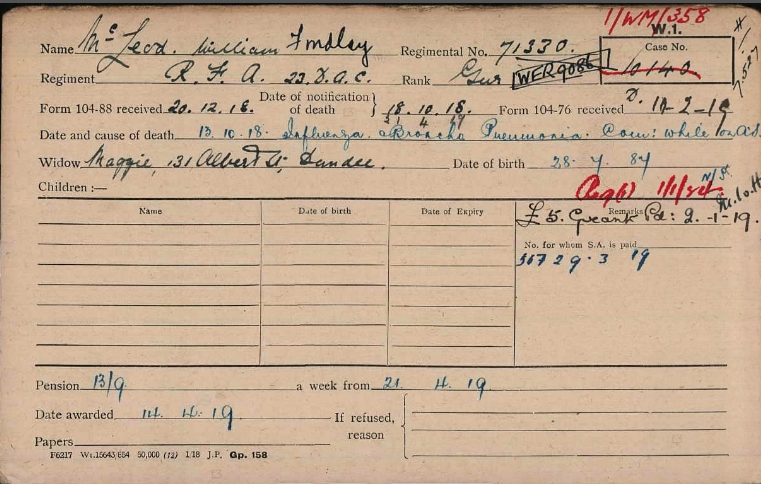 1/WM/358
W.1.
Name McLeod. William Findlay Regimental No. 71330. Case No.
10140
Regiment R. F. A. 23. D.A.C. Rank Gnr WFR9086
Form 104-88 received 20. 12. 18. Date of notification of death } 18. 10. 18. Form 104-76 received 11-2-19
Date and cause of death 13. 10. 18. Influenza. Broncho Pneumonia. Com: while on A.S.
Widow Maggie, 131 Albert St, Dundee. Date of birth 28. 7. 87
Children :—
Name Date of birth Date of Expiry Remarks
£5. Grant Pd: 2. -1-19.
No. for whom S.A. is paid
29. 3 19
Pension 13/9. a week from 21. 4. 19.
Date awarded 14. 4. 19. If refused, reason
Papers
F6217 Wt.15643/654 50,000 (12) 1/18 J.P. Gp. 158